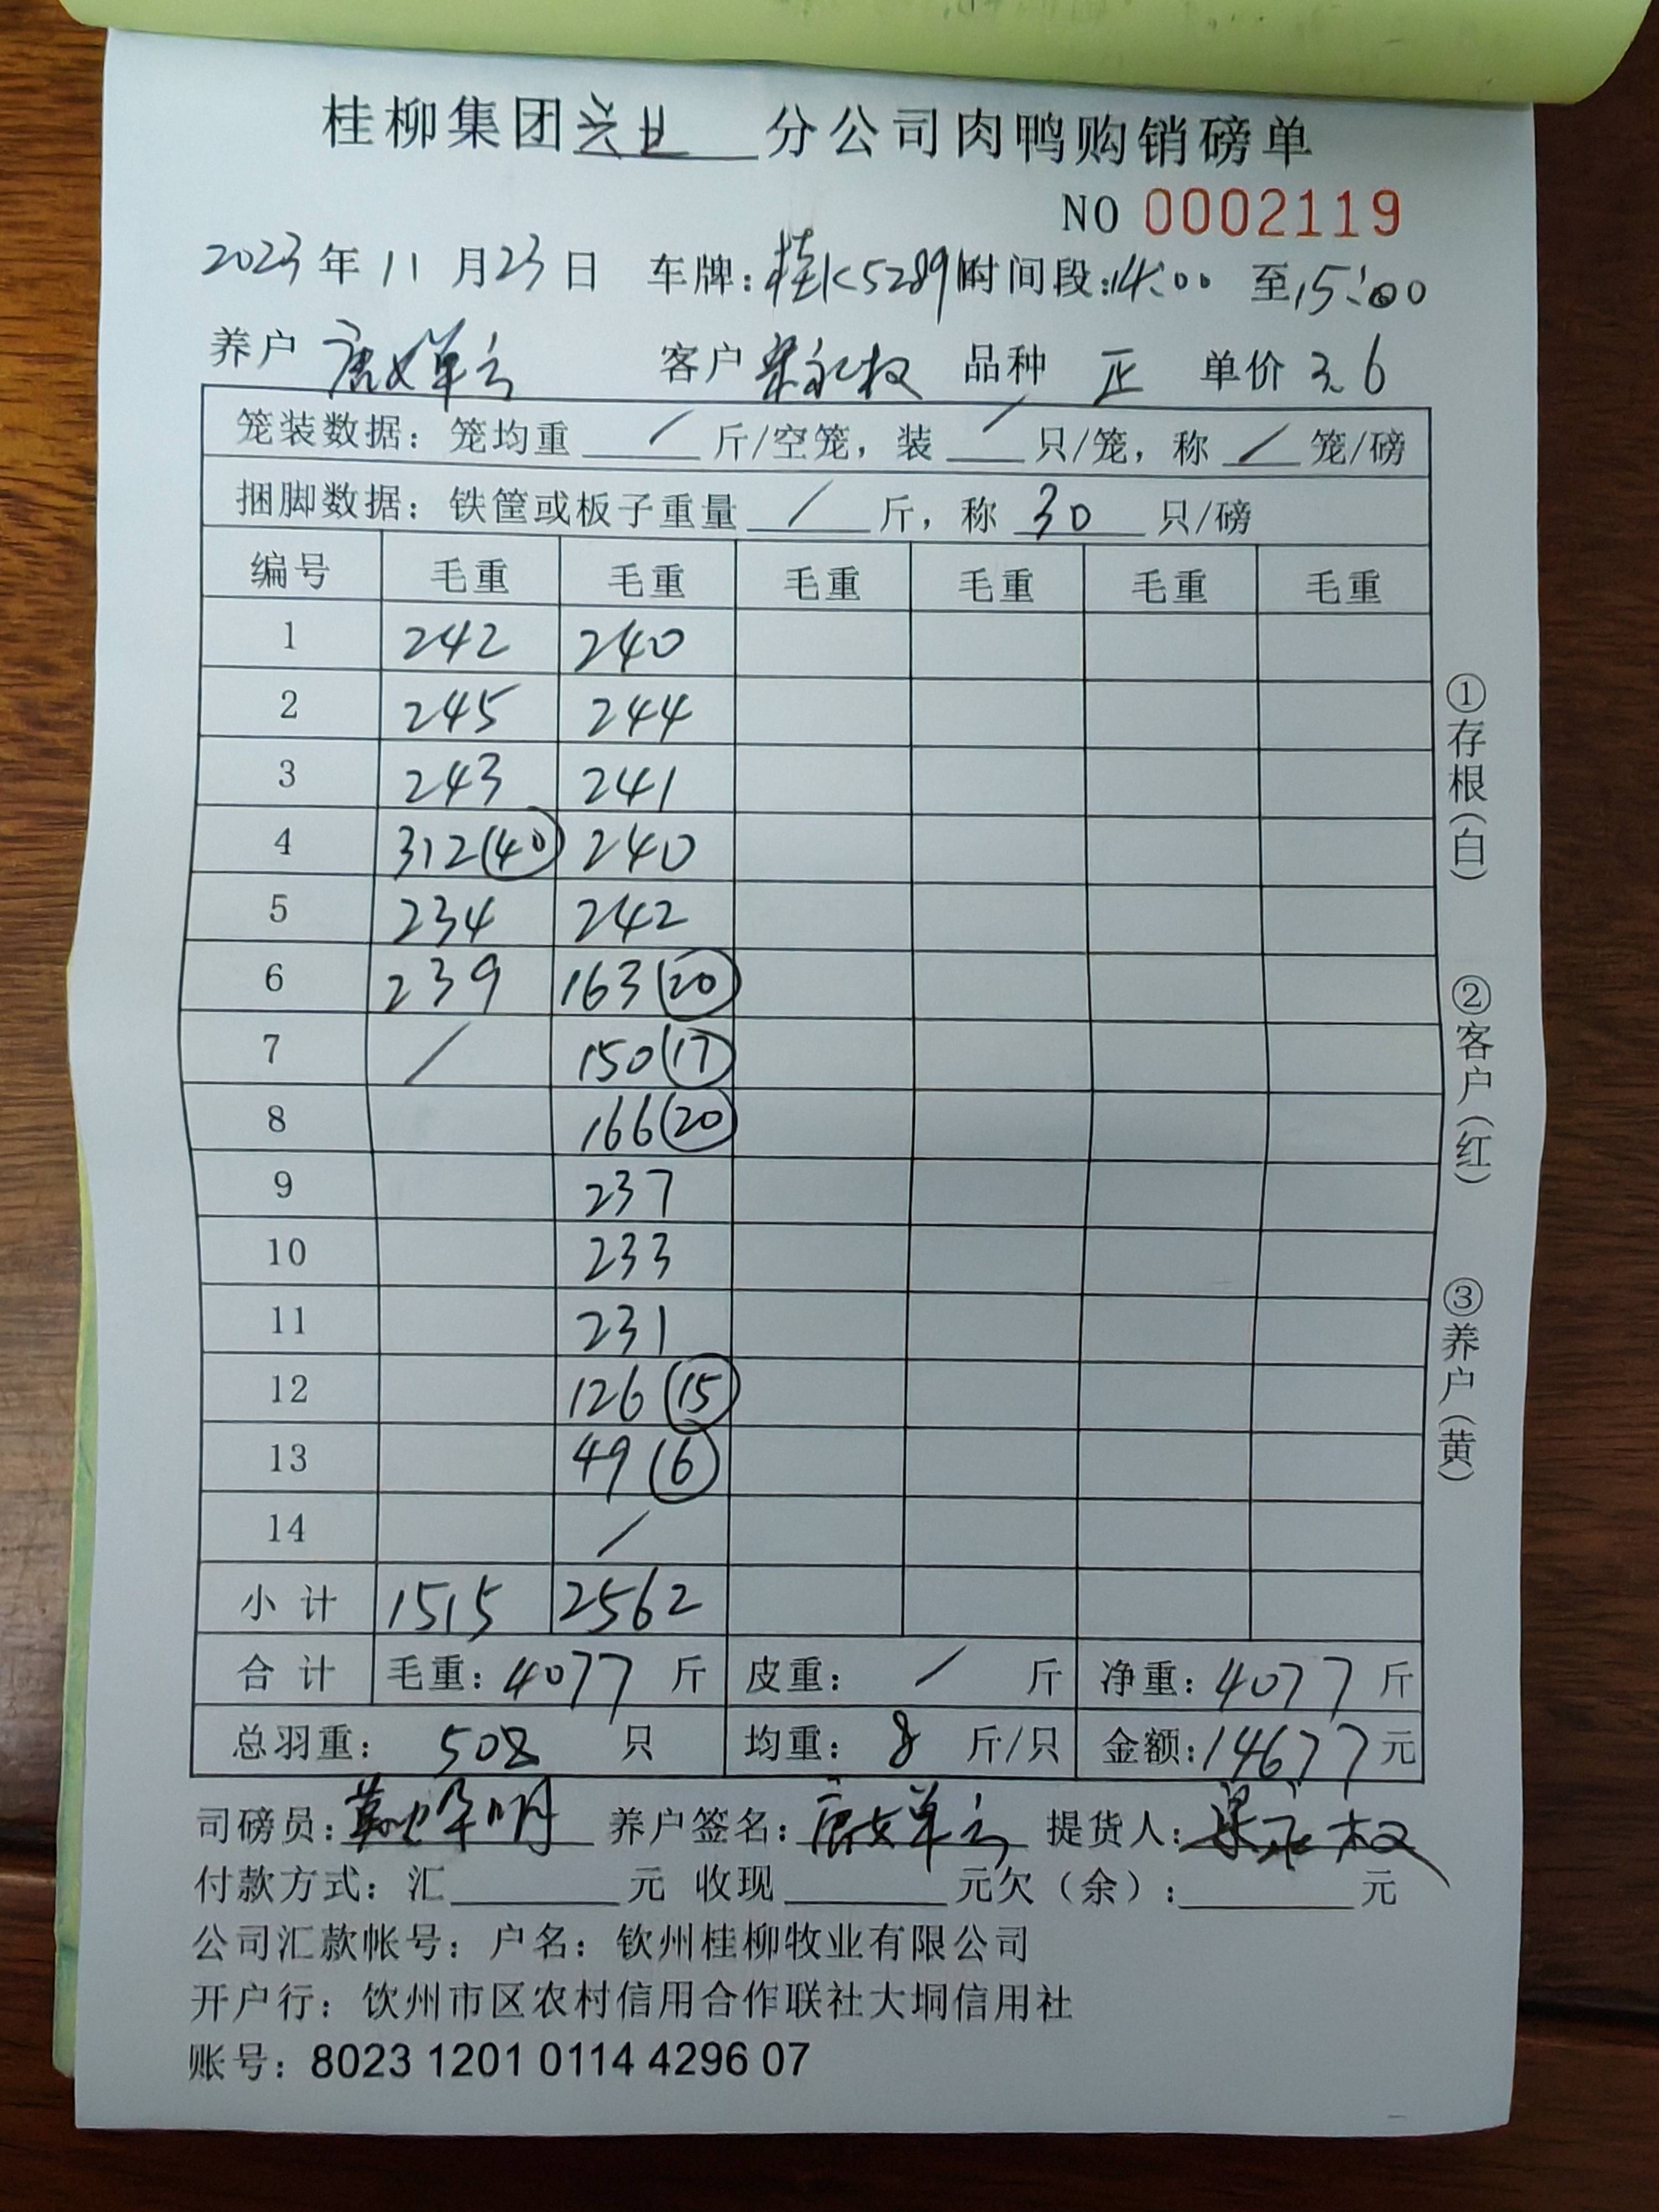 桂柳集团兴业分公司肉鸭购销磅单
NO 0002119
2023年11月23日 车牌:桂K5289 时间段:14:00 至15:00
养户 唐婵云 客户 梁永权 品种 正 单价 3.6
笼装数据：笼均重 / 斤/空笼，装 / 只/笼，称 / 笼/磅
捆脚数据：铁筐或板子重量 / 斤，称 30 只/磅
编号 毛重 毛重 毛重 毛重 毛重 毛重
1 242 240
2 245 244
3 243 241
4 312(40) 240
5 234 242
6 239 163(20)
7 / 150(17)
8 166(20)
9 237
10 233
11 231
12 126(15)
13 49(6)
14 /
小计 1515 2562
合计 毛重：4077 斤 皮重： / 斤 净重：4077 斤
总羽重： 508 只 均重： 8 斤/只 金额:14677元
司磅员: 养户签名:唐婵云 提货人:梁永权
付款方式：汇 元 收现 元欠（余）: 元
公司汇款帐号：户名：钦州桂柳牧业有限公司
开户行：钦州市区农村信用合作联社大垌信用社
账号：8023 1201 0114 4296 07
①存根(白)
②客户(红)
③养户(黄)